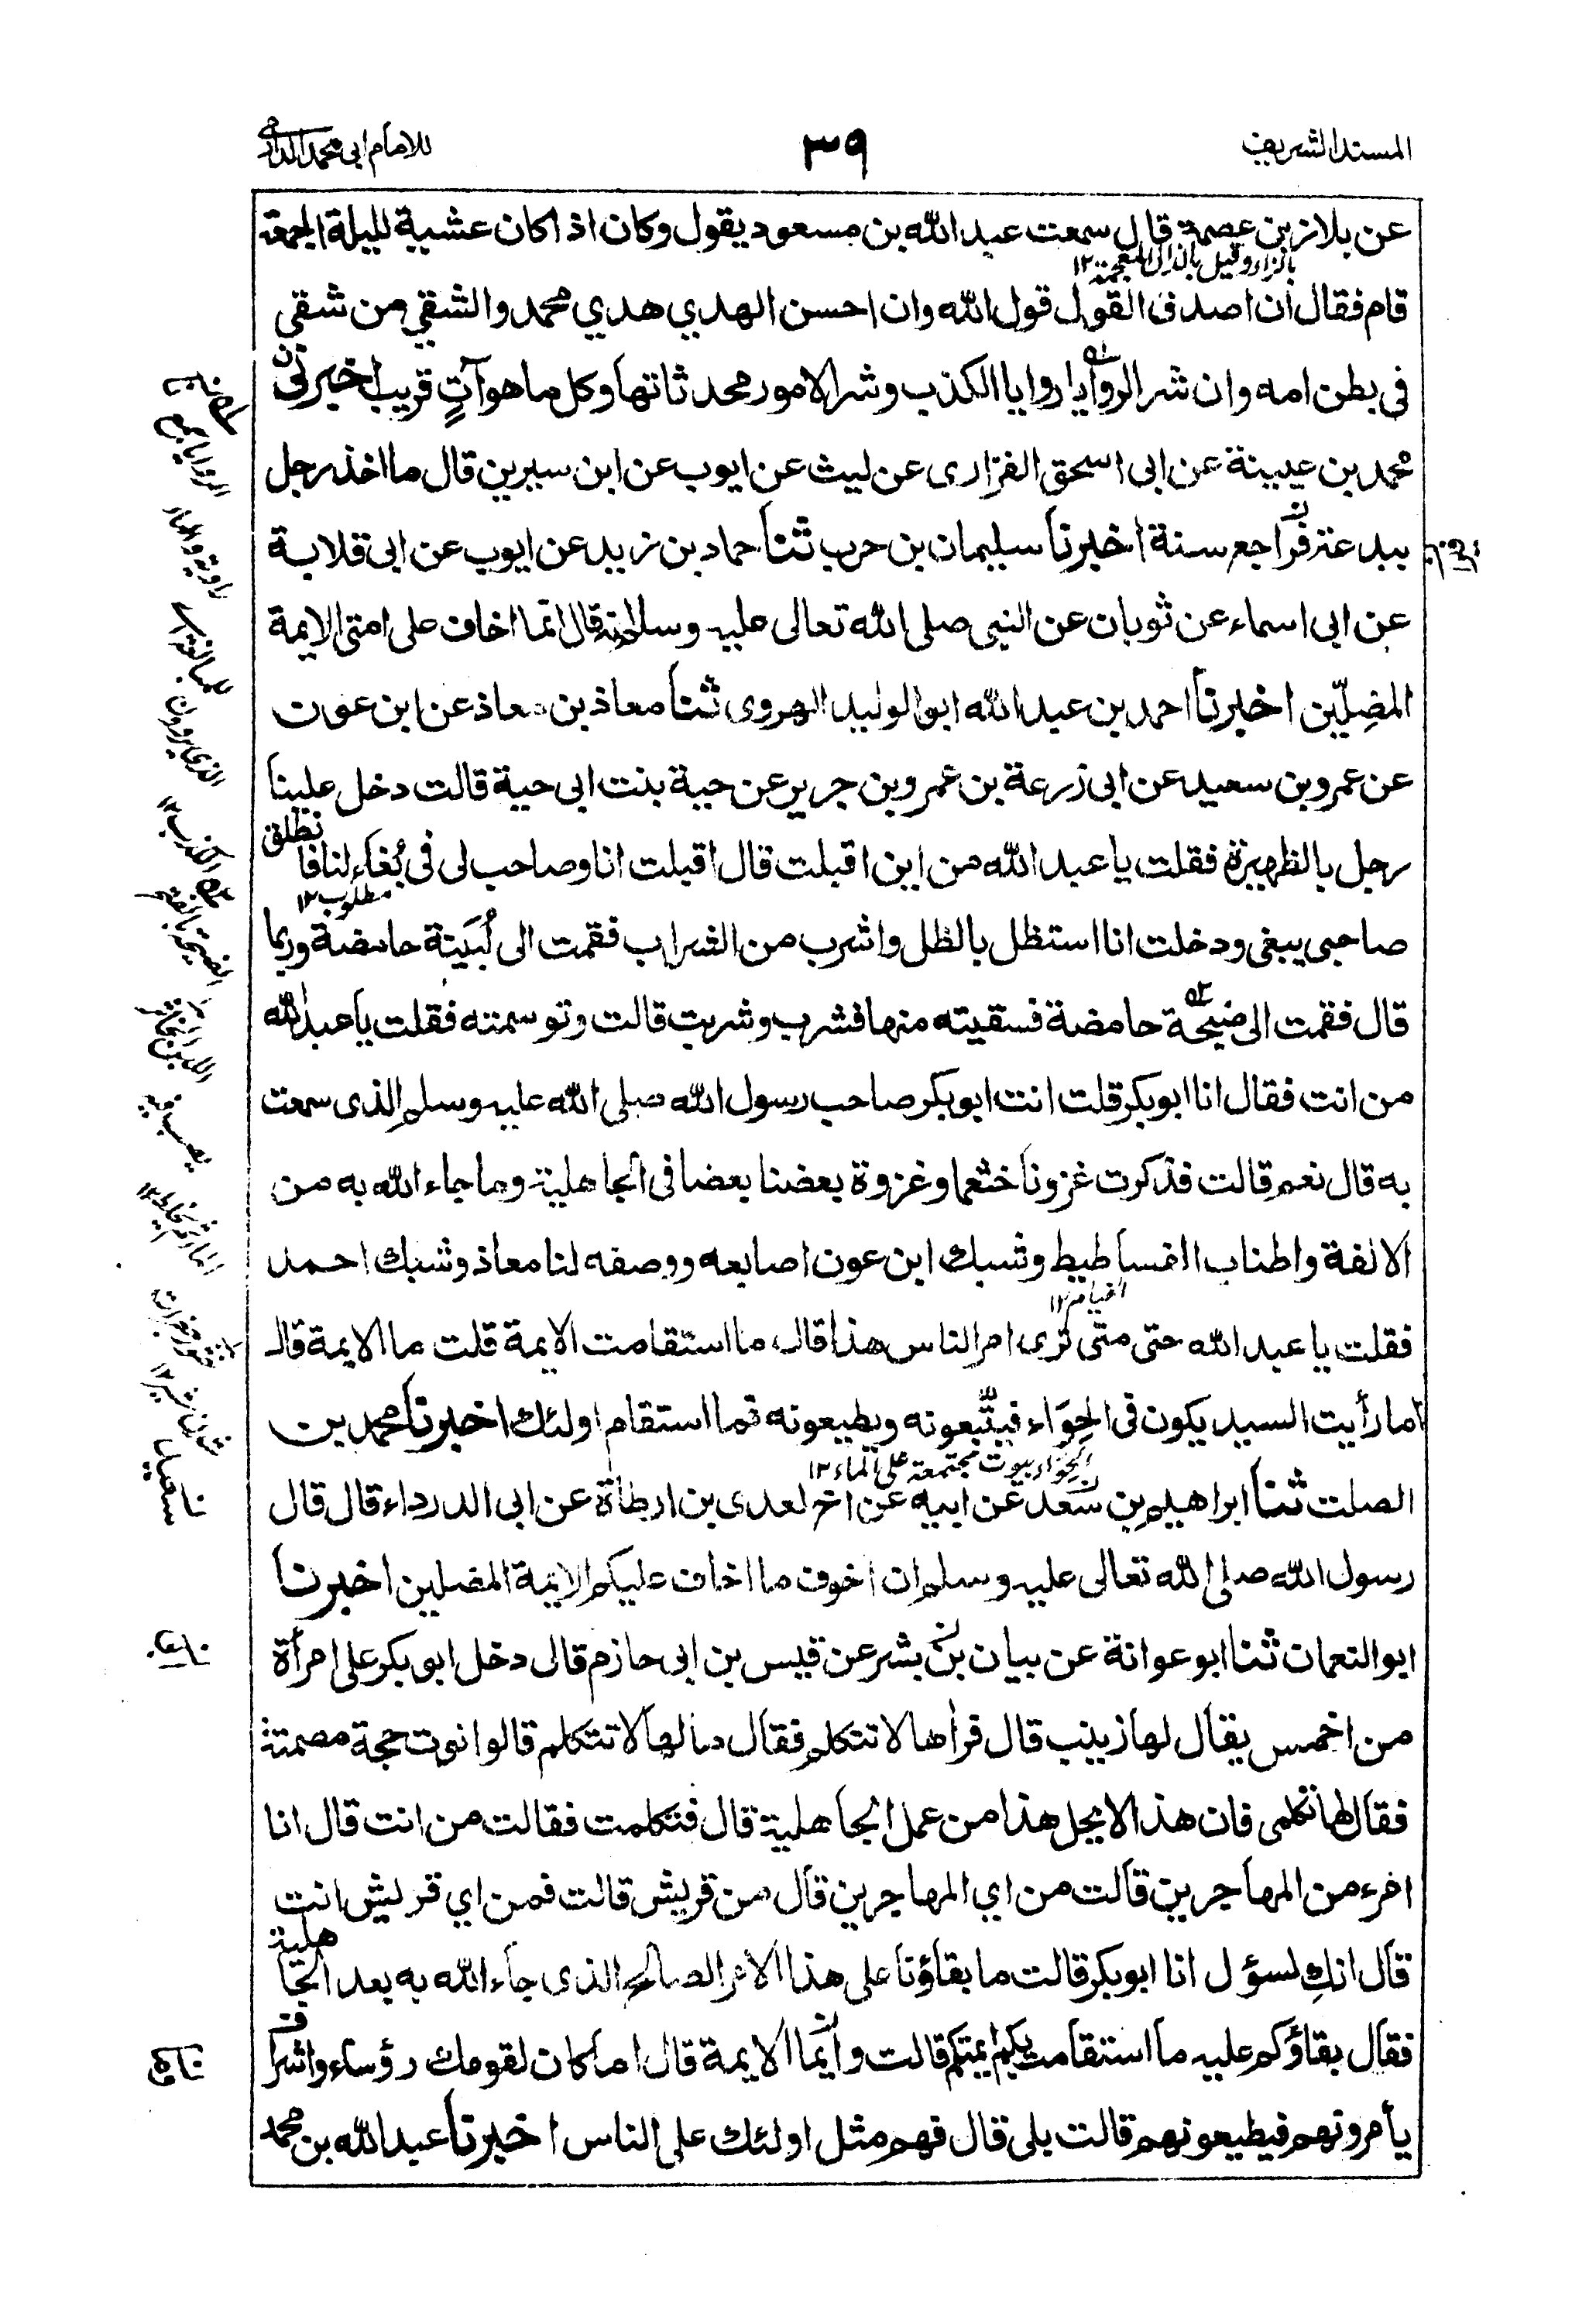 المسند الشريف
٣٩
للامام ابى محمد الدارمي
عن بلاز بن عصمة قال سمعت عبد الله بن مسعود يقول وكان اذا كان عشية لليلة الجمعة
بالزاء وقيل بالذال المعجمة ١٢
قام فقال ان اصدق القول قول الله وان احسن الهدي هدي محمد والشقي من شقي
فى بطن امه وان شر الروايا روايا الكذب وشر الامور محدثاتها وكل ما هو آتٍ قريب اخبرنى
محمد بن عيينة عن ابى اسحق الفزارى عن ليث عن ايوب عن ابن سيرين قال ما اخذ رجل
ببدعة فراجع سنة اخبرنا سليمان بن حرب ثنا حماد بن زيد عن ايوب عن ابى قلابة
عن ابى اسماء عن ثوبان عن النبى صلى الله تعالى عليه وسلم انه قال انما اخاف على امتى الايمة
المضلّين اخبرنا احمد بن عبد الله ابو الوليد الهروى ثنا معاذ بن معاذ عن ابن عون
عن عمرو بن سعيد عن ابى زرعة بن عمرو بن جرير عن حية بنت ابى حية قالت دخل علينا
رجل بالظهيرة فقلت يا عبد الله من اين اقبلت قال اقبلت انا وصاحب لى فى بُغاء لنا فانطلق
مطلوب ١٢
صاحبى يبغى ودخلت انا استظل بالظل واشرب من الشراب فقمت الى لُبَينة حامضة وربما
قال فقمت الى ضيحة حامضة فسقيته منها فشرب وشربت قالت وتوسمته فقلت يا عبد الله
من انت فقال انا ابو بكر قلت انت ابو بكر صاحب رسول الله صلى الله عليه وسلم الذى سمعت
به قال نعم قالت فذكرت غزونا خثعما وغزوة بعضنا بعضا فى الجاهلية وما جاء الله به من
الالفة واطناب الفساطيط وشبك ابن عون اصابعه ووصفه لنا معاذ وشبك احمد
الخيام ١٢
فقلت يا عبد الله حتى متى ترى امر الناس هذا قال ما استقامت الايمة قلت ما الايمة قال
اما رأيت السيد يكون فى الحِوَاء فيتّبعونه ويطيعونه فما استقام اولئك اخبرنا محمد بن
الحواء بيوت مجتمعة على الماء ١٢
الصلت ثنا ابراهيم بن سعد عن ابيه عن اخ لعدى بن ارطاة عن ابى الدرداء قال قال
رسول الله صلى الله تعالى عليه وسلم ان اخوف ما اخاف عليكم الايمة المضلين اخبرنا
ابو النعمان ثنا ابو عوانة عن بيان بن بشر عن قيس بن ابى حازم قال دخل ابو بكر على امرأة
من احمس يقال لها زينب قال فرأها لا تتكلم فقال ما لها لا تتكلم قالوا نوت حجة مصمتة
فقال لها تكلمى فان هذا لا يحل هذا من عمل الجاهلية قال فتكلمت فقالت من انت قال انا
امرء من المهاجرين قالت من اي المهاجرين قال من قريش قالت فمن اي قريش انت
قال انكِ لسؤل انا ابو بكر قالت ما بقاؤنا على هذا الامر الصالح الذى جاء الله به بعد الجاهلية
فقال بقاؤكم عليه ما استقامت بكم ايمتكم قالت وايما الايمة قال اما كان لقومك رؤساء واشراف
يأمرونهم فيطيعونهم قالت بلى قال فهم مثل اولئك على الناس اخبرنا عبد الله بن محمد